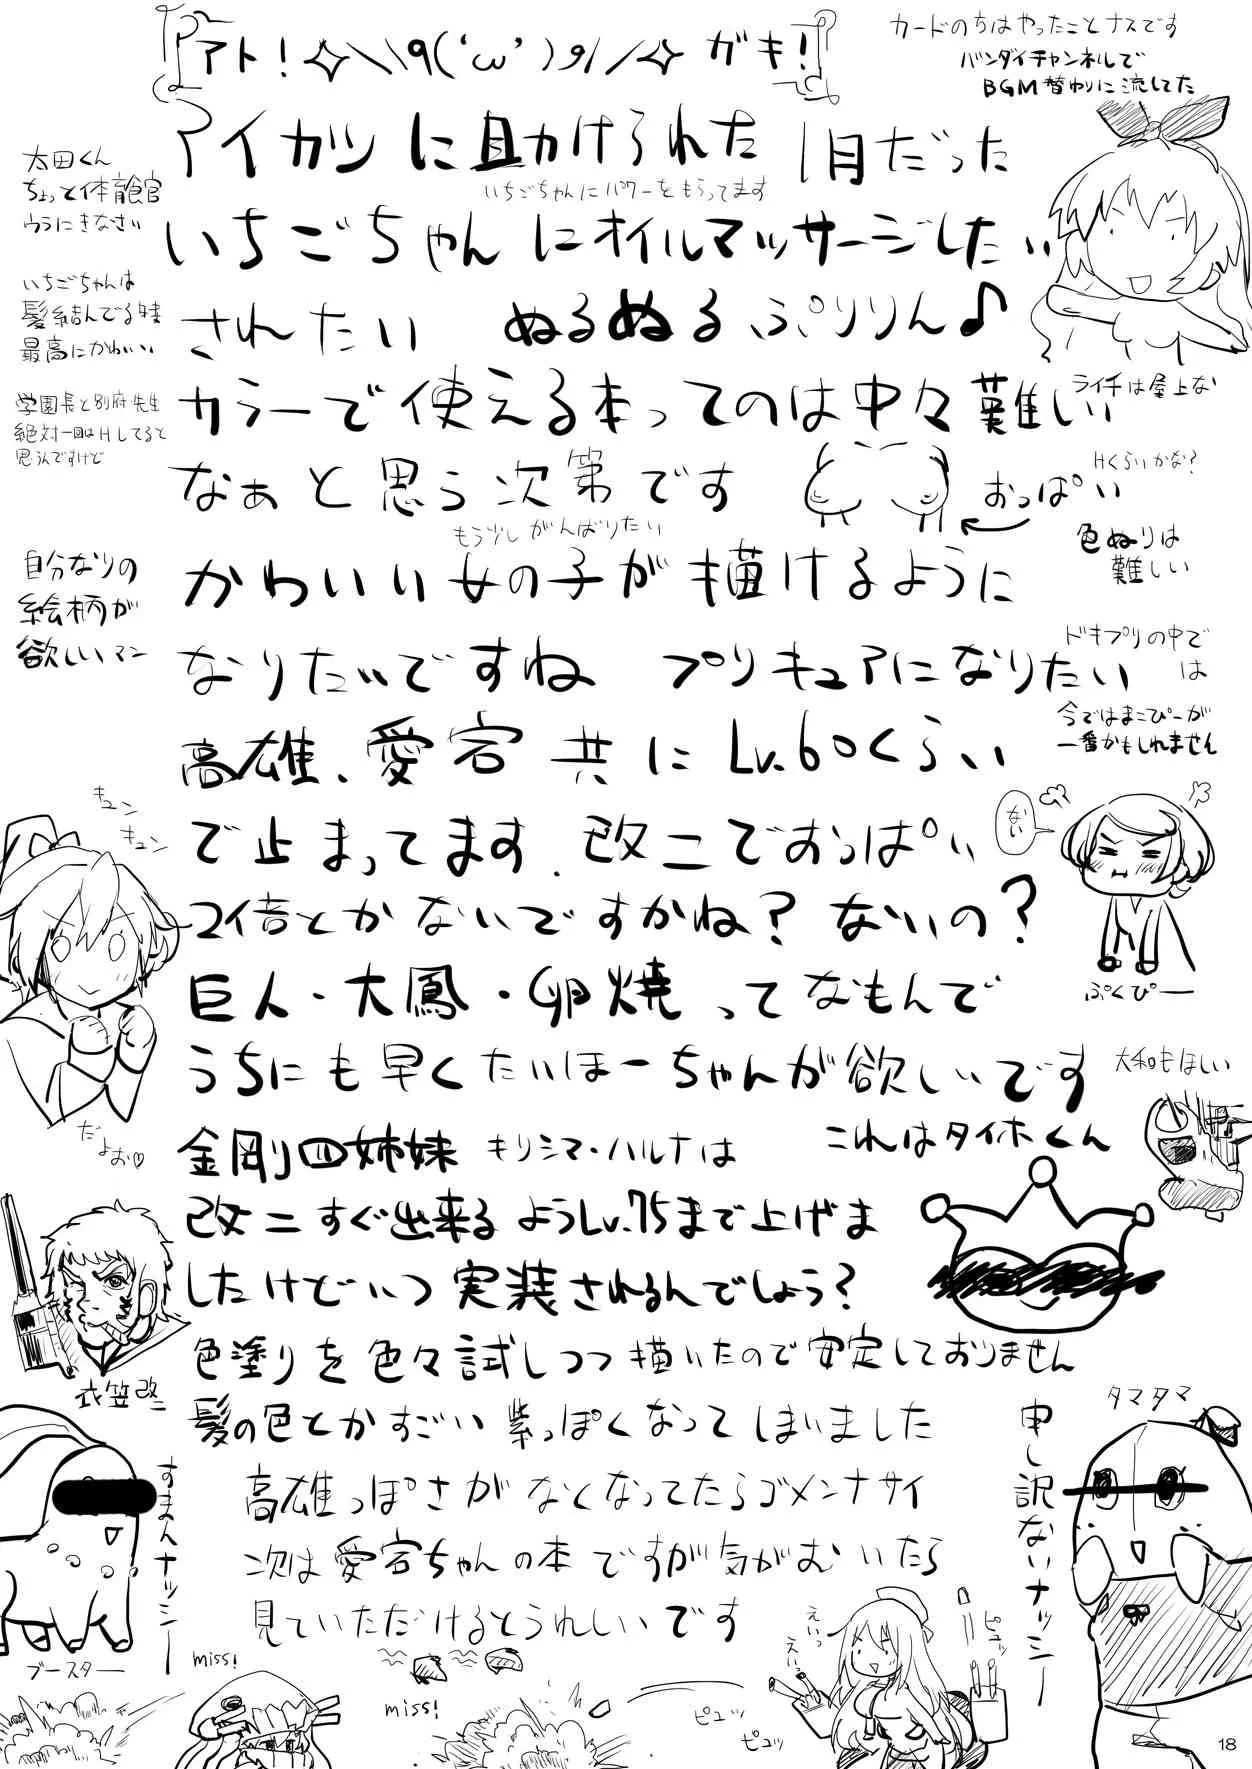 アト！✧＼\٩(‘ω’)و/／✧ ガキ！
カードのちはやったことナスです
バンダイチャンネルで
BGM替わりに流してた
アイカツに助けられた1月だった
太田くん
ちょっと体育館
ウラにきなさい
いちごちゃんにパワーをもらってます
いちごちゃんにオイルマッサージしたい
いちごちゃんは
髪結んでる時
最高にかわいい
されたい ぬるぬるぷりりん♪
学園長と別府先生
絶対一回はHしてると
思うんですけど
カラーで使える本ってのは中々難しい
ライチは屋上な
なぁと思う次第です
おっぱい
Hくらいかな？
もう少しがんばりたい
色ぬりは
難しい
自分なりの
絵柄が
欲しいマン
かわいい女の子が描けるように
なりたいですね プリキュアになりたい
ドキプリの中で
は
今ではまこぴーが
一番かもしれません
高雄、愛宕共にLv.60くらい
キュン
キュン
で止まってます．改二でおっぱい
ない
2倍とかないですかね？ないの？
巨人・大鳳・卵焼ってなもんで
ぷくぴー
うちにも早くたいほーちゃんが欲しいです
大和もほしい
だよぉ♡
金剛四姉妹 キリシマ・ハルナは
これはタイホくん
改二すぐ出来るようLv.75まで上げま
したけどいつ実装されるんでしょう？
衣笠改二
色塗りを色々試しつつ描いたので安定しておりません
髪の色とかすごい紫っぽくなってしまいました
タマタマ
申し訳ないナッシー
すまんナッシー
ブースター
高雄っぽさがなくなってたらゴメンナサイ
次は愛宕ちゃんの本ですが気がむいたら
見ていただけるとうれしいです
miss!
miss!
えいっ
えいっ
ピュッ
ピュッ
ピュッ
18